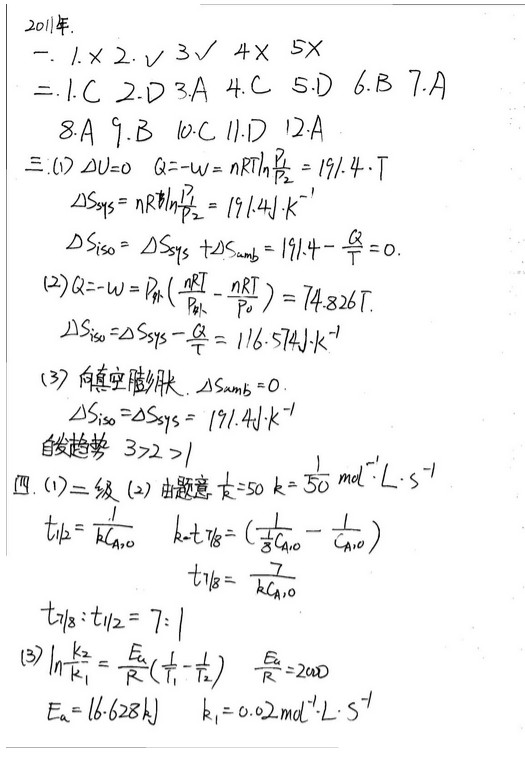 2011年.
一. 1.× 2.√ 3√ 4× 5×
二.1.C 2.D 3.A 4.C 5.D 6.B 7.A
8.A 9.B 10.C 11.D 12.A
三.(1) ΔU=0 Q=-W=nRTln P₁/P₂ = 191.4·T
ΔSsys = nRln P₁/P₂ = 191.4J·K⁻¹
ΔSiso = ΔSsys +ΔSamb = 191.4 - Q/T = 0.
(2) Q=-W = P外(nRT/P外 - nRT/P₀) = 74.826T.
ΔSiso=ΔSsys - Q/T = 116.574J·K⁻¹
(3) 向真空膨胀. ΔSamb=0.
ΔSiso=ΔSsys = 191.4J·K⁻¹
自发趋势 3>2>1
四.(1)二级 (2) 由题意 1/k=50 k= 1/50 mol⁻¹·L·s⁻¹
t1/2= 1/kCA,0 k·t7/8=(1/(1/8 CA,0) - 1/CA,0)
t7/8= 7/kCA,0
t7/8:t1/2=7:1
(3) ln k₂/k₁ = Ea/R (1/T₁ - 1/T₂) Ea/R=2000
Ea=16.628kJ k₁=0.02mol⁻¹·L·S⁻¹